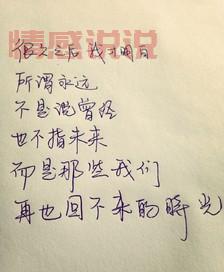 情感说说
很久之后 我才明白
所谓永远
不是说曾经
也不指未来
而是那些我们
再也回不来的時光